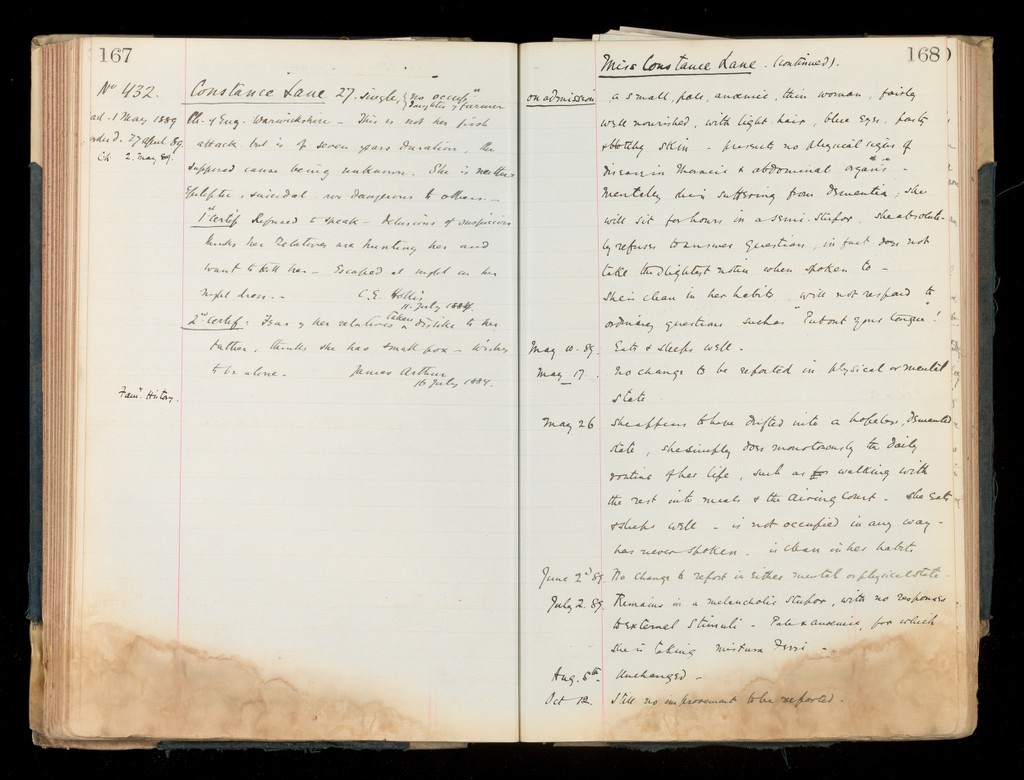 167
No 432.
Constance Lane 27. Single, no occupn
daughter of Farmer
ad. 1 May 1889
Ch. of Eng. Warwickshire – This is not her first
order d. 27 April 89.
attack but is of seven years duration. The
Ch 2. May 89.
supposed cause being unknown. She is neither
Epileptic, suicidal nor dangerous to others. –
1st Certif Refused to speak – Delusions of suspicion
thinks her relatives are hunting her and
want to kill her – Escaped at night in her
night dress. – C. E. Hollis
11 July 1884.
2nd Certif: Fear of her relatives taken a dislike to her
father, thinks she has small pox – wishes
to be alone. – James Arthur
16 July 1884.
Famy History.
168
Miss Constance Lane. (continued).
on admission
a small, pale, anaemic, thin woman, fairly
well nourished, with light hair, blue eyes, pasty
blotchy skin – presents no physical signs of
disease in thoracic & abdominal organs –
Mentally she is suffering from Dementia, she
will sit for hours in a semi-stupor, she absolute-
ly refuses to answer questions, in fact does not
take the slightest notice when spoken to –
She is clean in her habits, will not respond to
ordinary questions such as "Put out your tongue"!
May 10. 89. Eats & sleeps well –
May 17. No change to be reported in physical or mental
state
May 26 She appears to have drifted into a hopeless, demented
state, she simply does monotonously the daily
routine of her life, such as walking with
the rest into meals & the airing Court – She eats
& sleeps well – is not occupied in any way –
has never spoken. is clean in her habits
June 2d 89. No change to report in either mental or physical state.
July 2. 89. Remains in a melancholic stupor, with no responses
to external stimuli – Pale & anaemic, for which
she is taking mistura Ferri –
Aug. 5th. Unchanged –
Oct 12. Still no improvement to be reported.